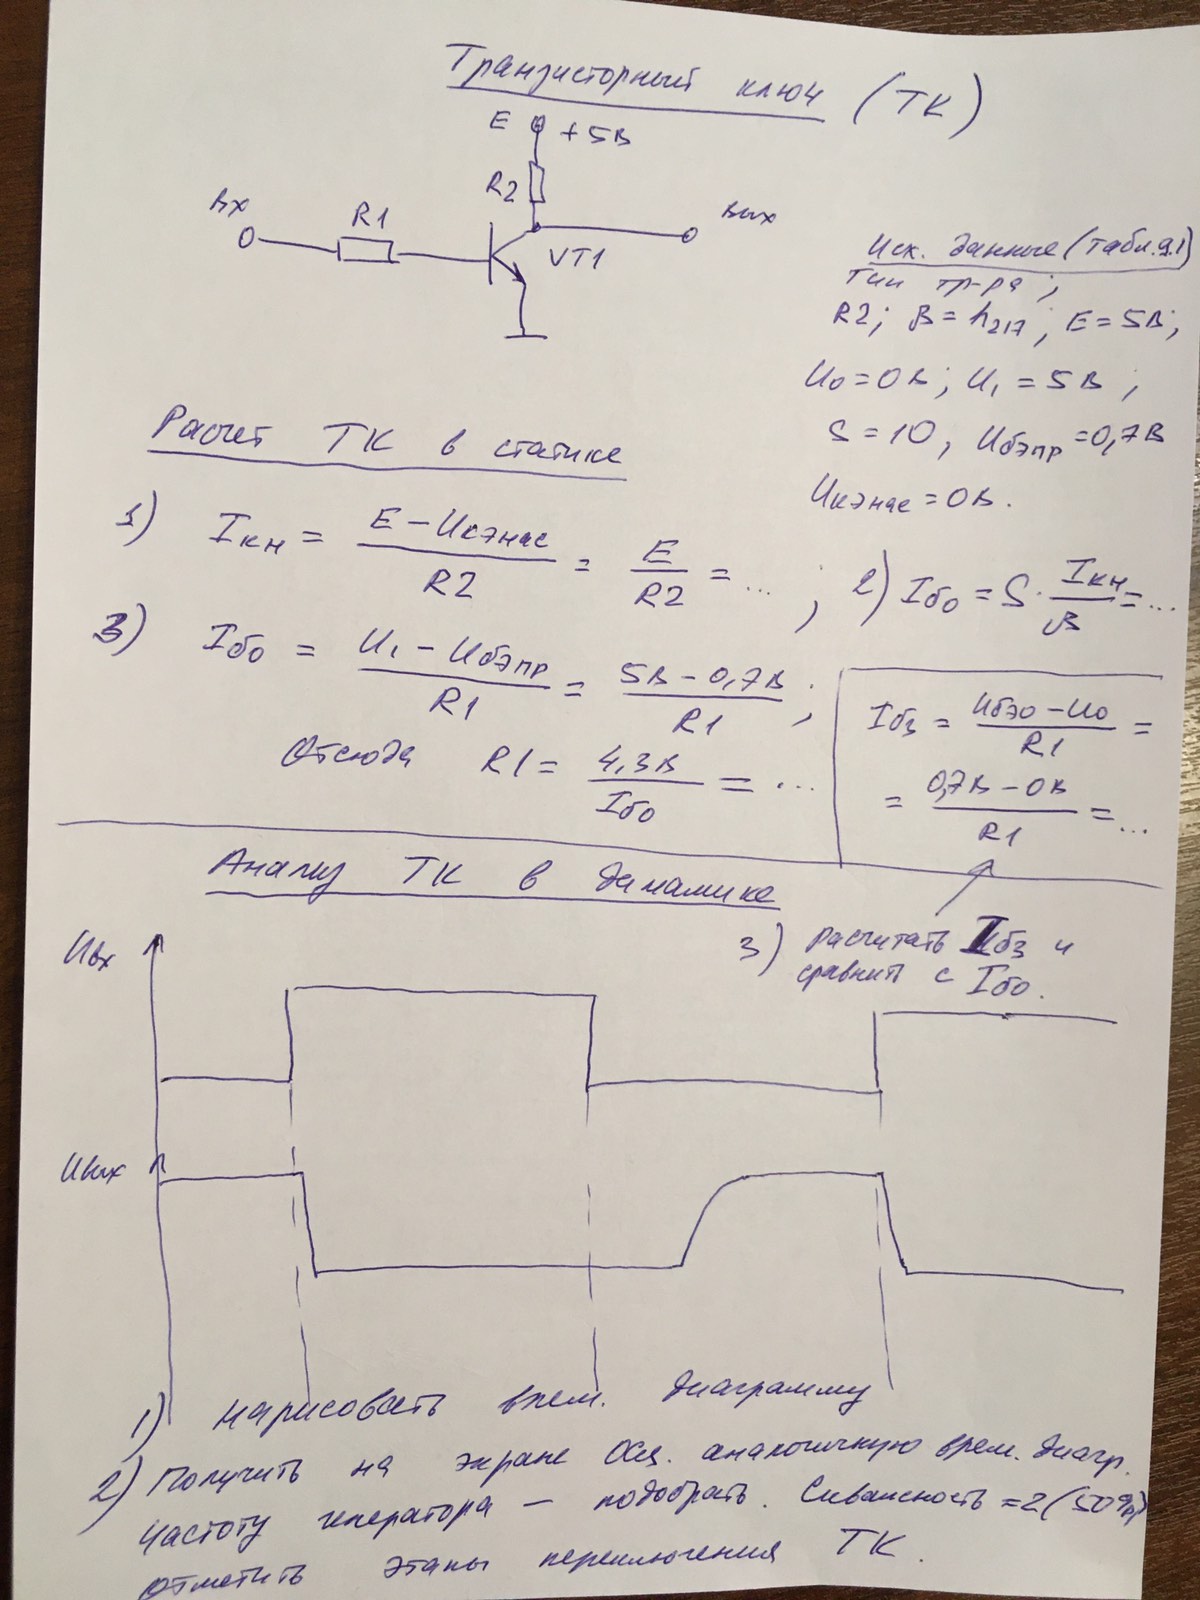 Транзисторный ключ (ТК)
E +5В
R2
Вх
R1
Вых
VT1
Исх. данные (табл. 9.1)
Тип тр-ра;
R2; β = h21э; E = 5В;
U0 = 0В; U1 = 5В;
S = 10, Uбэпр = 0,7В
Uкэнас = 0В.
Расчет ТК в статике
1) Iкн = (E − Uкэнас)/R2 = E/R2 = ... ; 2) Iбо = S · Iкн/β = ...
3) Iбо = (U1 − Uбэпр)/R1 = (5В − 0,7В)/R1 ;
Отсюда R1 = 4,3В/Iбо = ...
Iбз = (Uбэо − U0)/R1 =
= (0,7В − 0В)/R1 = ...
Анализ ТК в динамике
3) Расчитать Iбз и
сравнить с Iбо.
Uвх
Uвых
1) Нарисовать врем. диаграмму
2) Получить на экране Осц. аналогичную врем. диагр.
Частоту генератора — подобрать. Скважность = 2 (50%)
Отметить этапы переключения ТК.